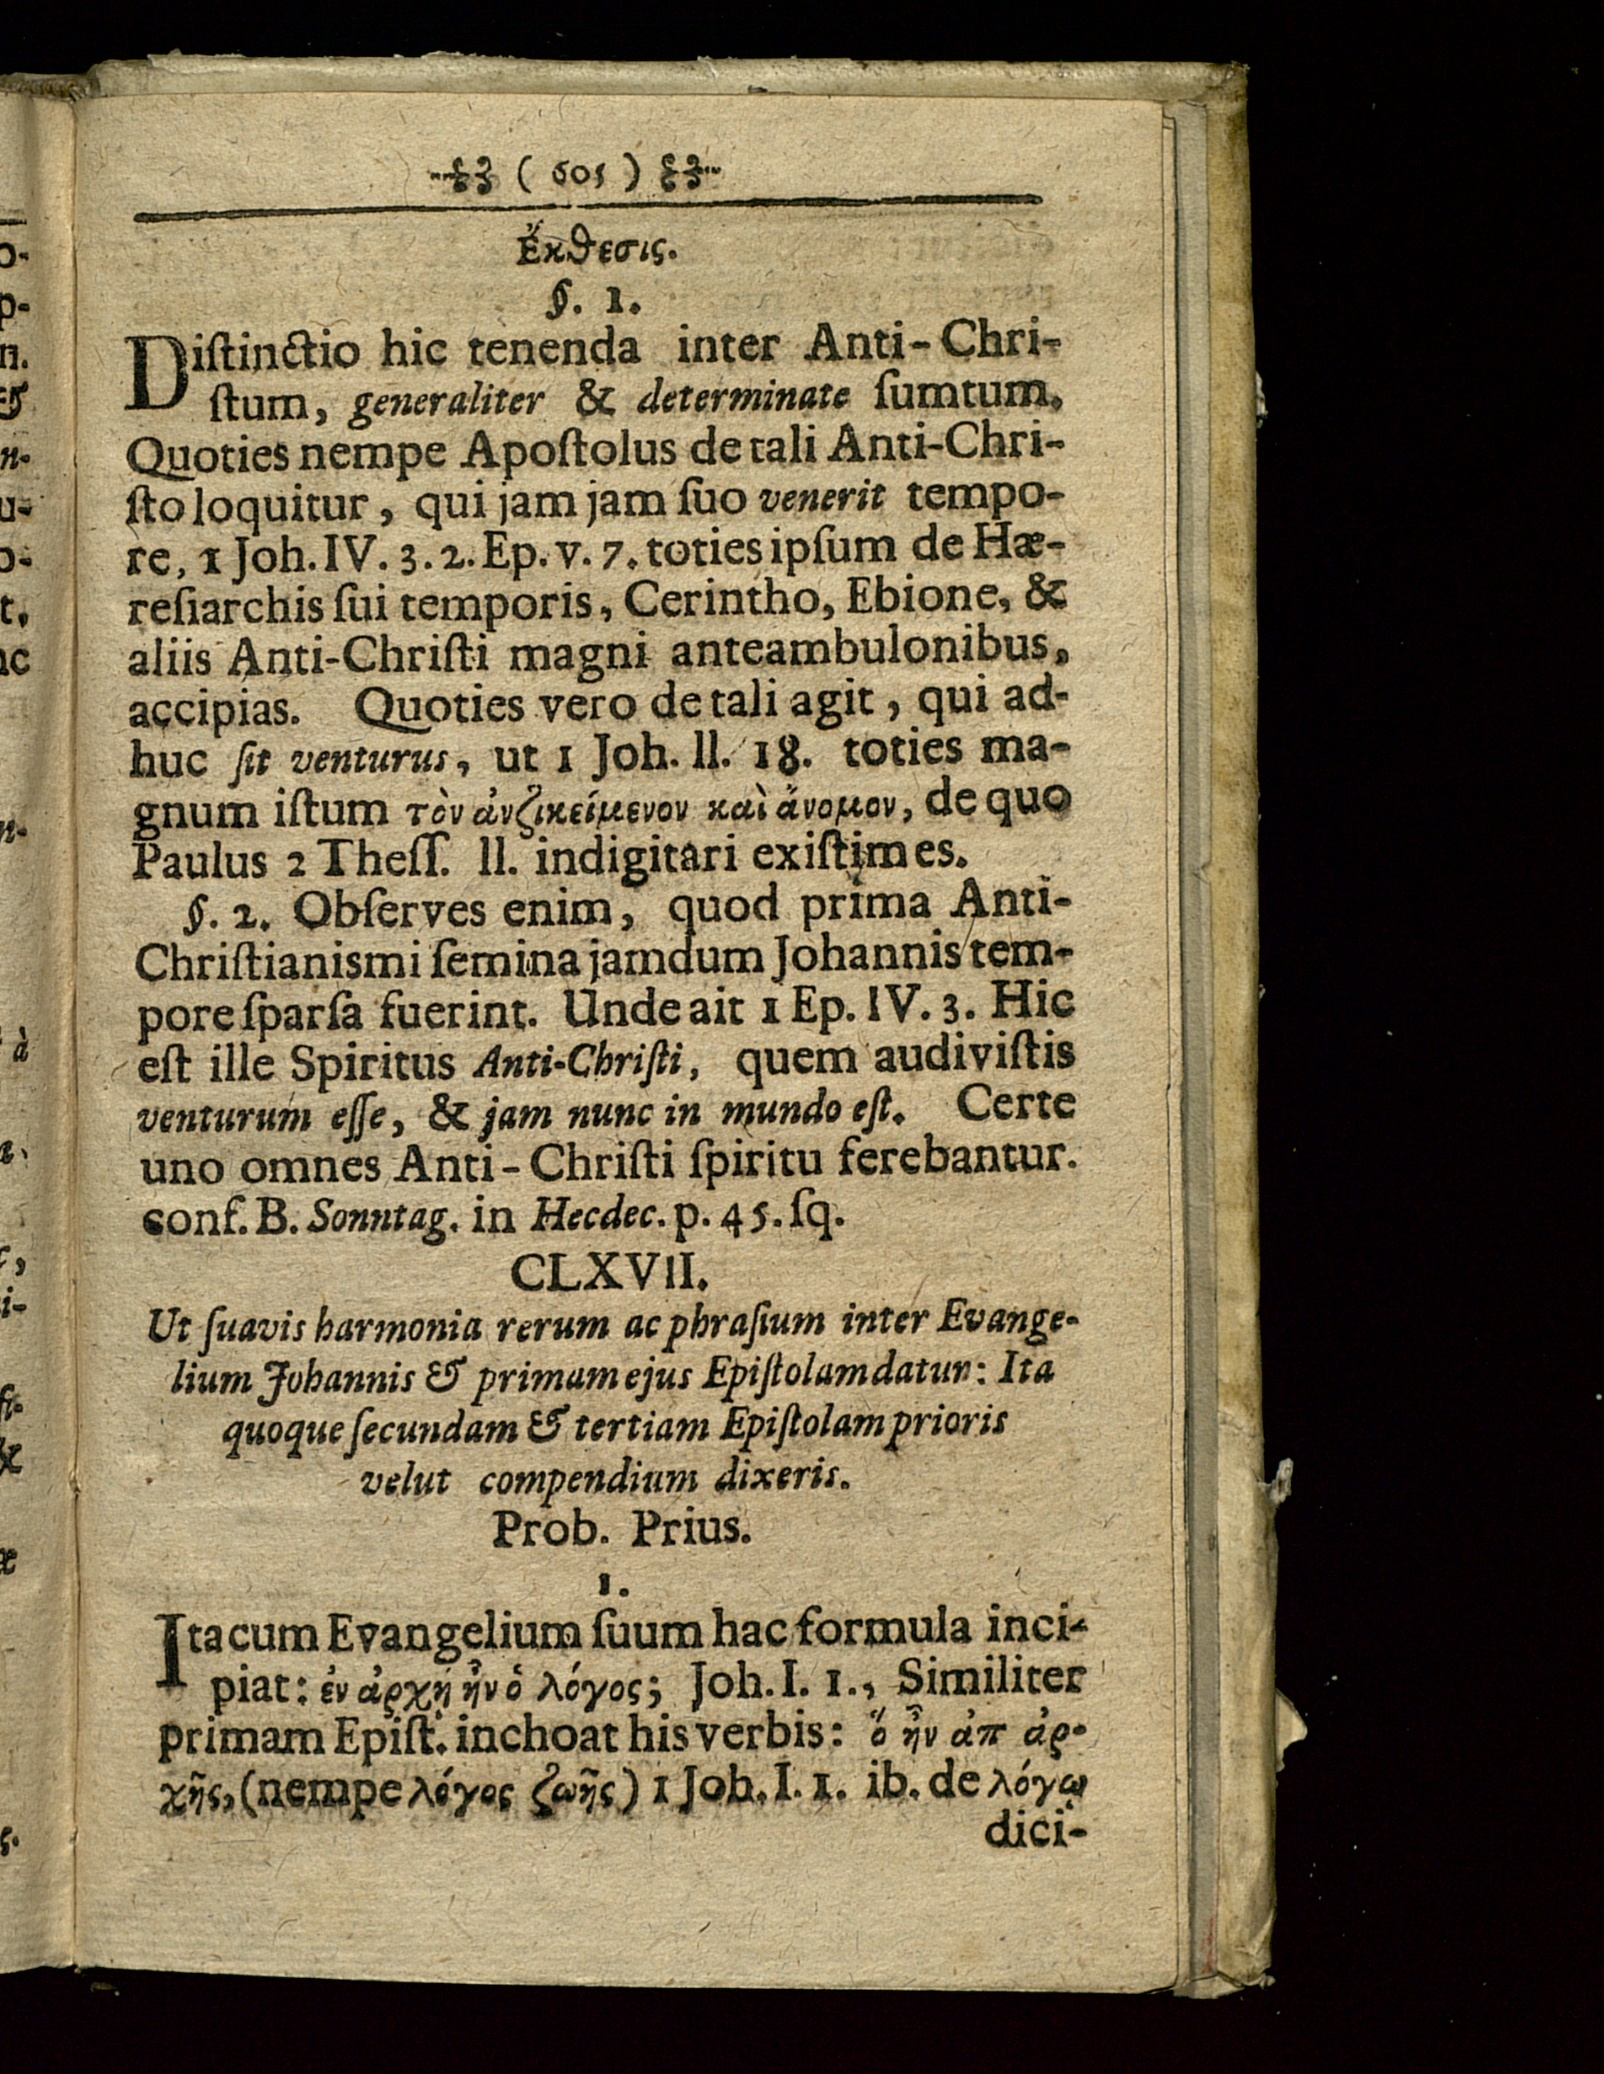 ( 605 )
Ἔκθεσις.
§. 1.
Distinctio hic tenenda inter Anti-Chri-
stum, generaliter & determinate sumtum.
Quoties nempe Apostolus de tali Anti-Chri-
sto loquitur, qui jam jam suo venerit tempo-
re, 1 Joh. IV. 3. 2. Ep. v. 7. toties ipsum de Hæ-
resiarchis sui temporis, Cerintho, Ebione, &
aliis Anti-Christi magni anteambulonibus,
accipias. Quoties vero de tali agit, qui ad-
huc sit venturus, ut 1 Joh. ll. 18. toties ma-
gnum istum τὸν ἀντικείμενον καὶ ἄνομον, de quo
Paulus 2 Thess. ll. indigitari existimes.
§. 2. Observes enim, quod prima Anti-
Christianismi semina jamdum Johannis tem-
pore sparsa fuerint. Unde ait 1 Ep. IV. 3. Hic
est ille Spiritus Anti-Christi, quem audivistis
venturum esse, & jam nunc in mundo est. Certe
uno omnes Anti-Christi spiritu ferebantur.
conf. B. Sonntag. in Hecdec. p. 45. sq.
CLXVII.
Ut suavis harmonia rerum ac phrasium inter Evange-
lium Johannis & primam ejus Epistolam datur: Ita
quoque secundam & tertiam Epistolam prioris
velut compendium dixeris.
Prob. Prius.
1.
Ita cum Evangelium suum hac formula inci-
piat: ἐν ἀρχῇ ἦν ὁ λόγος; Joh. I. 1., Similiter
primam Epist. inchoat his verbis: ὃ ἦν ἀπ ἀρ-
χῆς, (nempe λόγος ζωῆς) 1 Joh. I. 1. ib. de λόγῳ
dici-